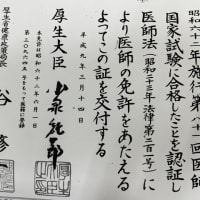 昭和六十二年施行第八十一回医師
国家試験に合格したことを認証し
医師法(昭和二十三年法律第二百一号)に
より医師の免許をあたえる
よってこの証を交付する
平成九年三月十四日
厚生大臣 小泉純一郎
本免許は昭和六十二年六月一日
号をもって医籍に登録
厚生省健康政策局長
谷 修